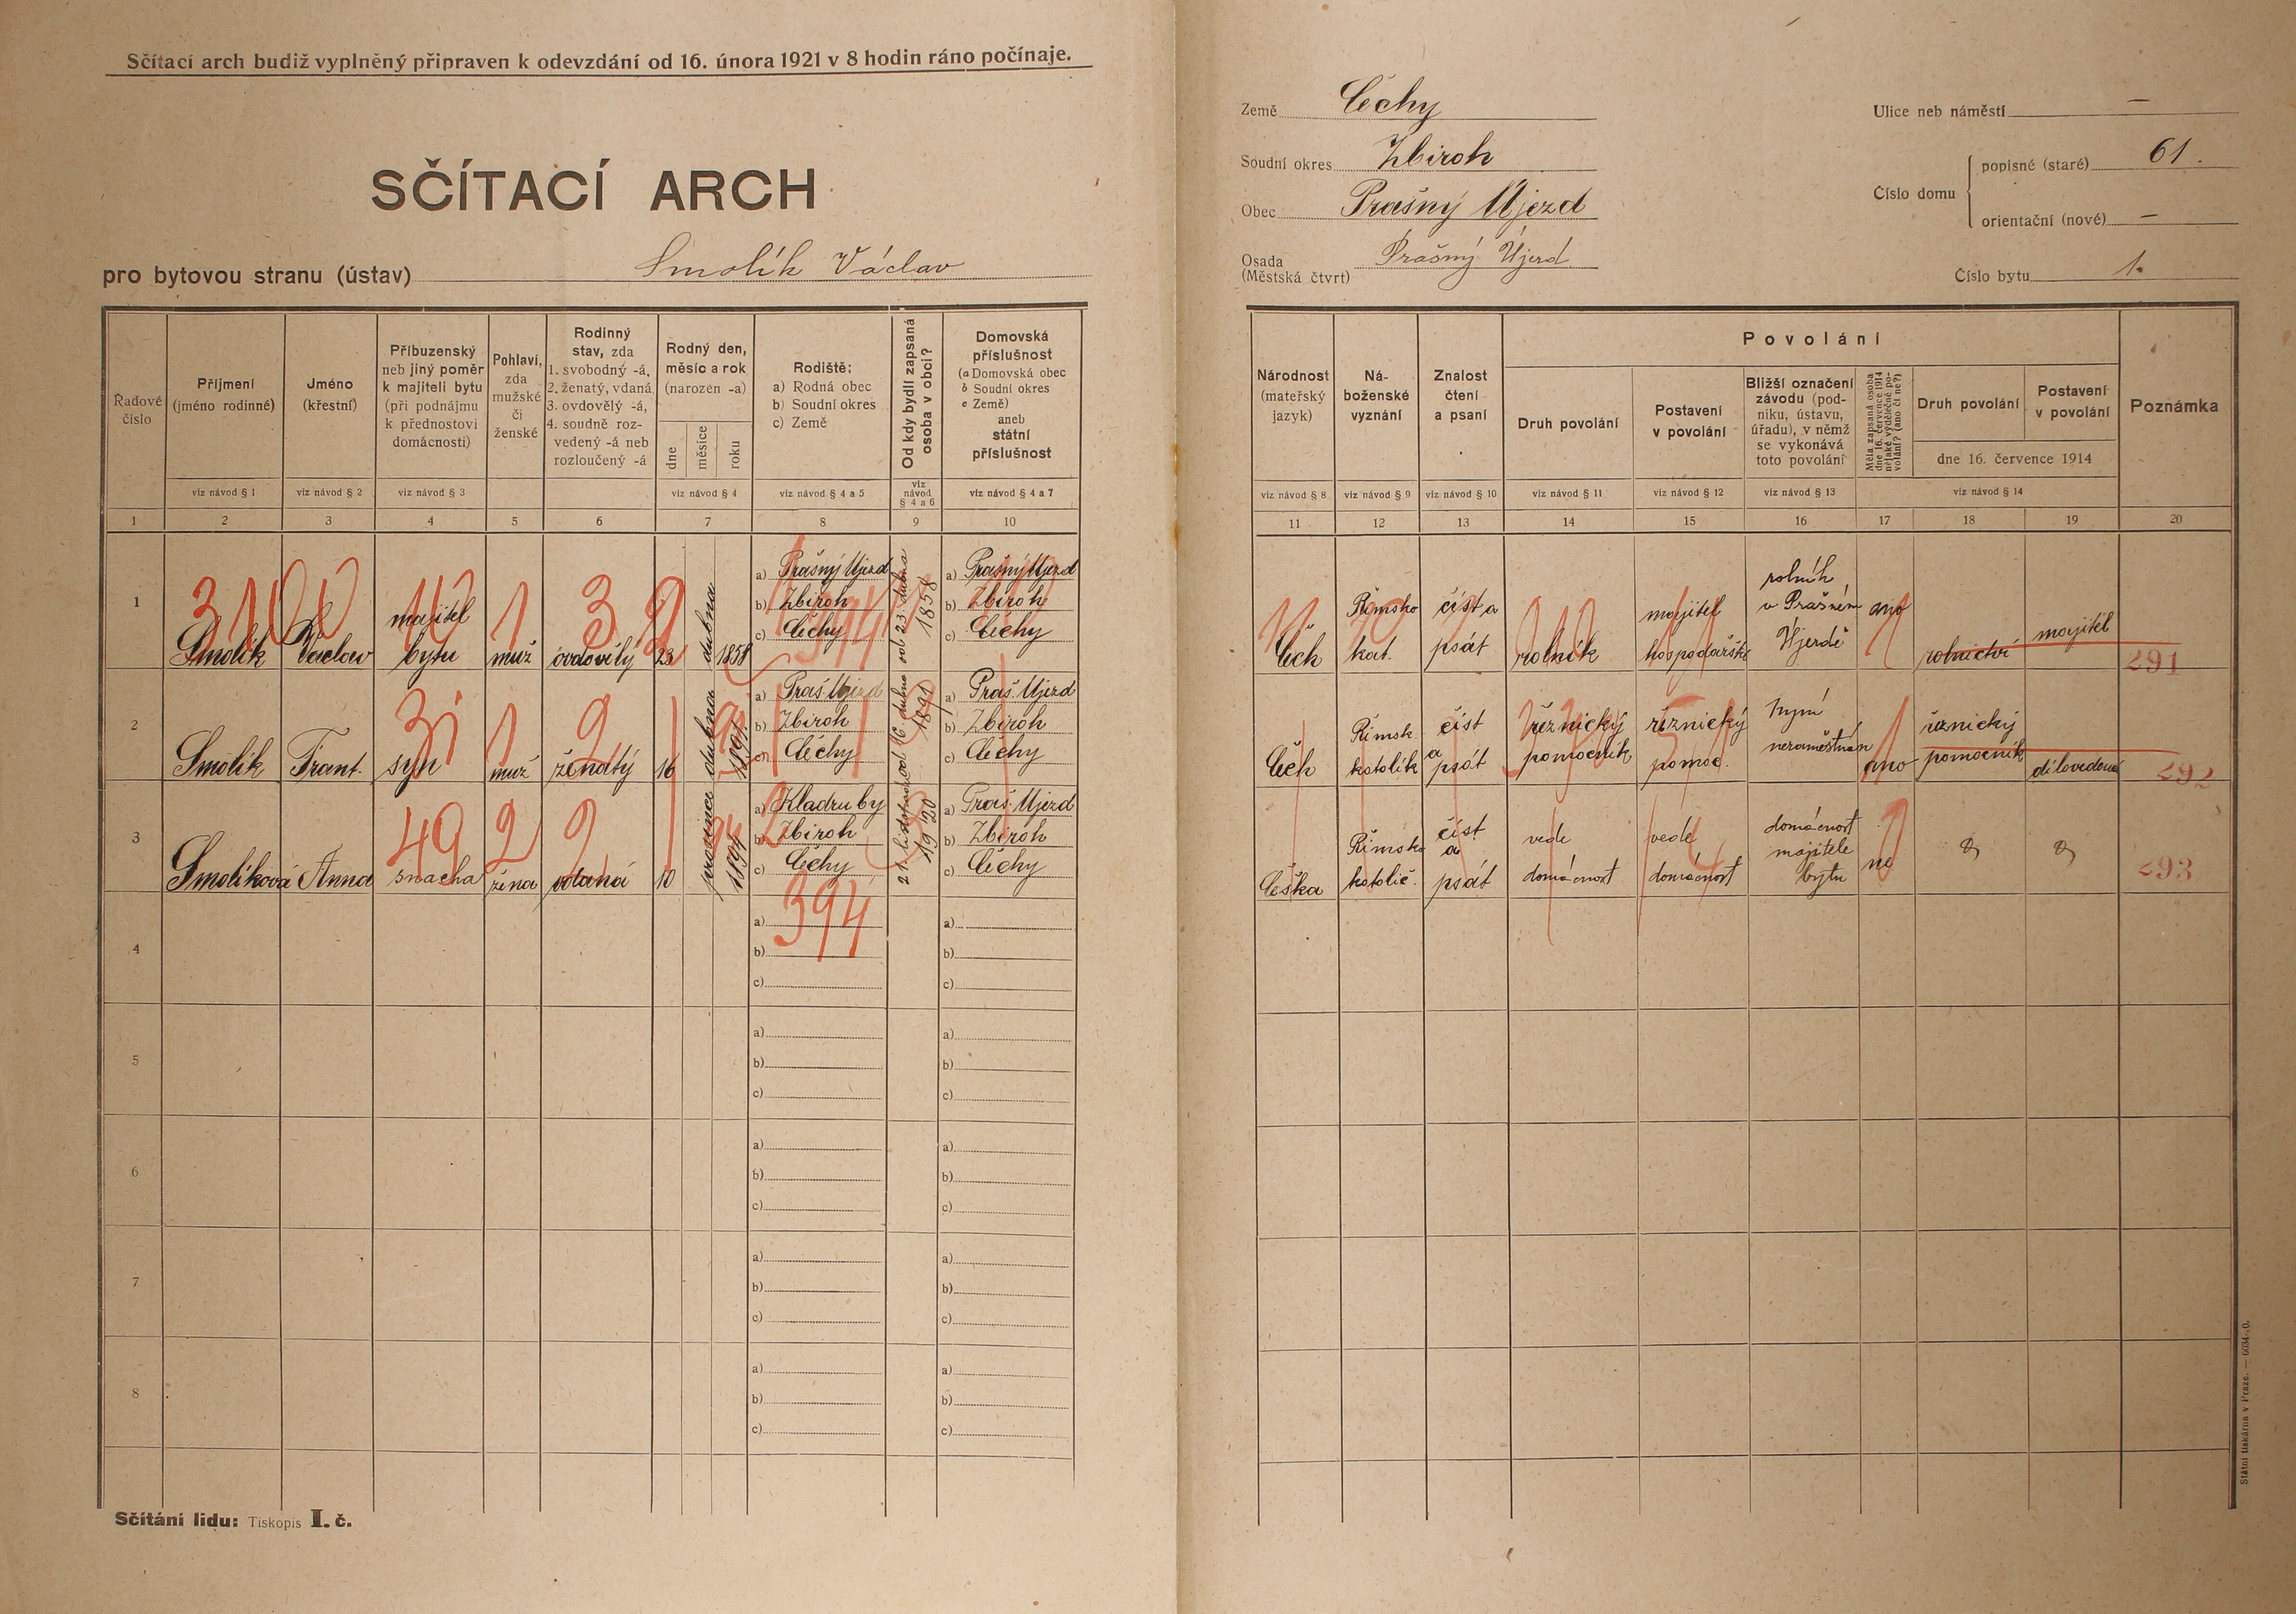 Sčítací arch budiž vyplněný připraven k odevzdání od 16. února 1921 v 8 hodin ráno počínaje.
SČÍTACÍ ARCH
pro bytovou stranu (ústav) Smolík Václav
Země Čechy
Soudní okres Zbiroh
Obec Prašný Újezd
Osada (Městská čtvrt) Prašný Újezd
Ulice neb náměstí —
Číslo domu
popisné (staré) 61.
orientační (nové) —
Číslo bytu 1.
Řadové číslo
Příjmení (jméno rodinné)
Jméno (křestní)
Příbuzenský neb jiný poměr k majiteli bytu (při podnájmu k přednostovi domácnosti)
Pohlaví, zda mužské či ženské
Rodinný stav, zda
1. svobodný -á,
2. ženatý, vdaná
3. ovdovělý -á,
4. soudně rozvedený -á neb rozloučený -á
Rodný den, měsíc a rok (narozen -a)
dne
měsíce
roku
Rodiště:
a) Rodná obec
b) Soudní okres
c) Země
Od kdy bydlí zapsaná osoba v obci?
Domovská příslušnost
(a Domovská obec
b Soudní okres
c Země)
aneb
státní příslušnost
viz návod § 1
viz návod § 2
viz návod § 3
viz návod § 4
viz návod § 4 a 5
viz návod § 4 a 6
viz návod § 4 a 7
1 2 3 4 5 6 7 8 9 10
Národnost (mateřský jazyk)
Náboženské vyznání
Znalost čtení a psaní
Povolání
Druh povolání
Postavení v povolání
Bližší označení závodu (podniku, ústavu, úřadu), v němž se vykonává toto povolání
Měla zapsaná osoba dne 16. července 1914 nějaké výdělečné povolání? (ano či ne?)
Druh povolání
Postavení v povolání
dne 16. července 1914
Poznámka
viz návod § 8
viz návod § 9
viz návod § 10
viz návod § 11
viz návod § 12
viz návod § 13
viz návod § 14
11 12 13 14 15 16 17 18 19 20
1
Smolík
Václav
majitel bytu
muž
ovdovělý
23
dubna
1858
a) Prašný Újezd
b) Zbiroh
c) Čechy
od 23 dubna 1858
a) Prašný Újezd
b) Zbiroh
c) Čechy
Čech
Římsko kat.
číst a psát
rolník
majitel hospodářství
rolník v Prašném Újezdě
ano
rolnictví
majitel
291
2
Smolík
Frant.
syn
muž
ženatý
16
dubna
1891
a) Praš Újezd
b) Zbiroh
c) Čechy
od 16 dubna 1891
a) Praš. Újezd
b) Zbiroh
c) Čechy
Čech
Římsk. katolík
číst a psát
řeznický pomocník
řeznický pomoc.
nyní nezaměstnán
ano
řeznický pomocník
292
3
Smolíková
Anna
snacha
žena
vdaná
10
prosince
1894
a) Kladruby
b) Zbiroh
c) Čechy
21 listopadu 1920
a) Praš. Újezd
b) Zbiroh
c) Čechy
Češka
Římsko katolič.
číst a psát
vede domácnost
vede domácnost
domácnost majitele bytu
ne
293
394
4
a)
b)
c)
a)
b)
c)
5
a)
b)
c)
a)
b)
c)
6
a)
b)
c)
a)
b)
c)
7
a)
b)
c)
a)
b)
c)
8
a)
b)
c)
a)
b)
c)
Sčítání lidu: Tiskopis I. č.